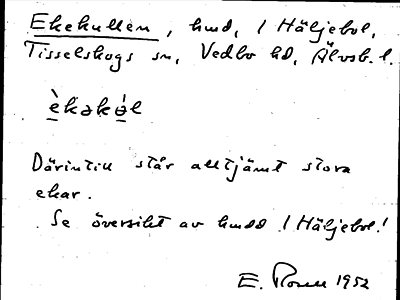 Ekekullen, hmd, i Häljebol,
Tisselskogs sn, Vedbo hd, Älvsb. l.
è̱kəkə̱́l
Därintill står alltjämt stora
ekar.
Se översikt av hmdd i Häljebol!
E. Rosell 1952